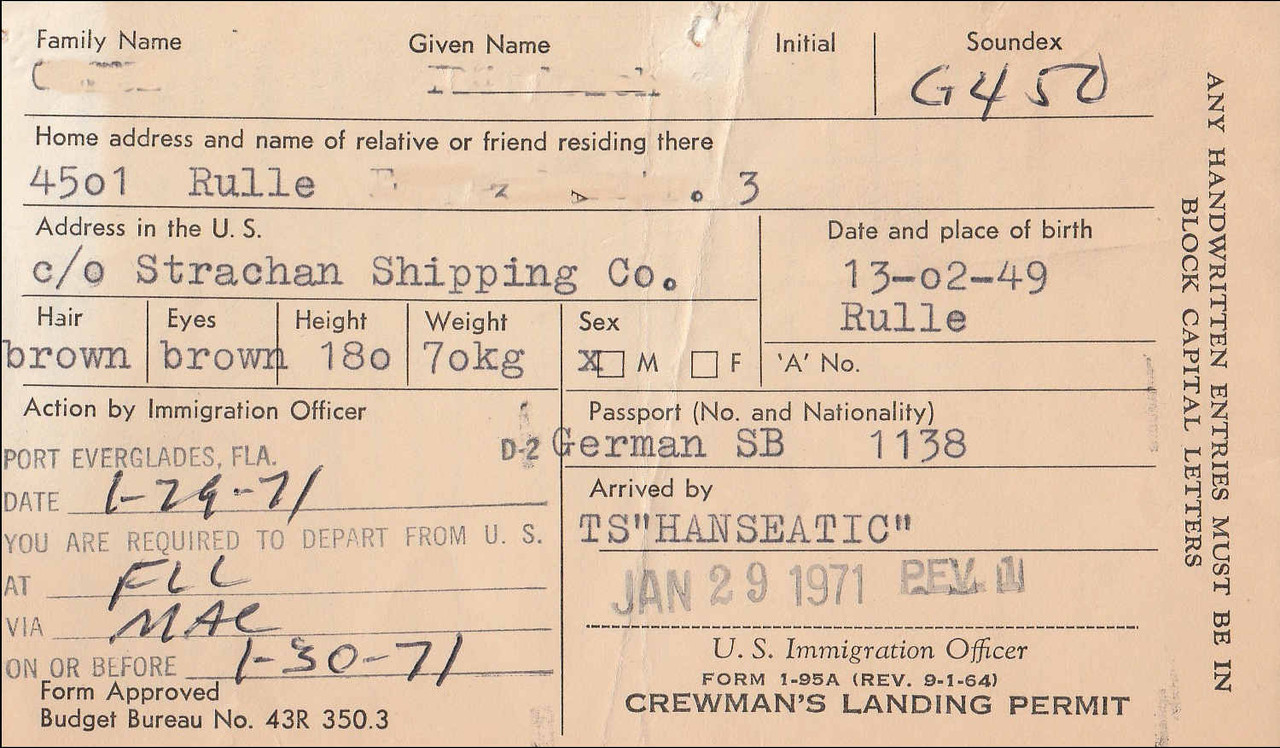 Family Name Given Name Initial Soundex
G450
Home address and name of relative or friend residing there
45o1 Rulle . 3
Address in the U. S.
c/o Strachan Shipping Co.
Date and place of birth
13-o2-49
Rulle
Hair Eyes Height Weight Sex
brown brown 18o 7okg X M F
'A' No.
Action by Immigration Officer
PORT EVERGLADES, FLA. D-2
DATE 1-29-71
YOU ARE REQUIRED TO DEPART FROM U. S.
AT FLL
VIA MAC
ON OR BEFORE 1-30-71
Form Approved
Budget Bureau No. 43R 350.3
Passport (No. and Nationality)
German SB 1138
Arrived by
TS"HANSEATIC"
JAN 29 1971
U. S. Immigration Officer
FORM I-95A (REV. 9-1-64)
CREWMAN'S LANDING PERMIT
ANY HANDWRITTEN ENTRIES MUST BE IN
BLOCK CAPITAL LETTERS